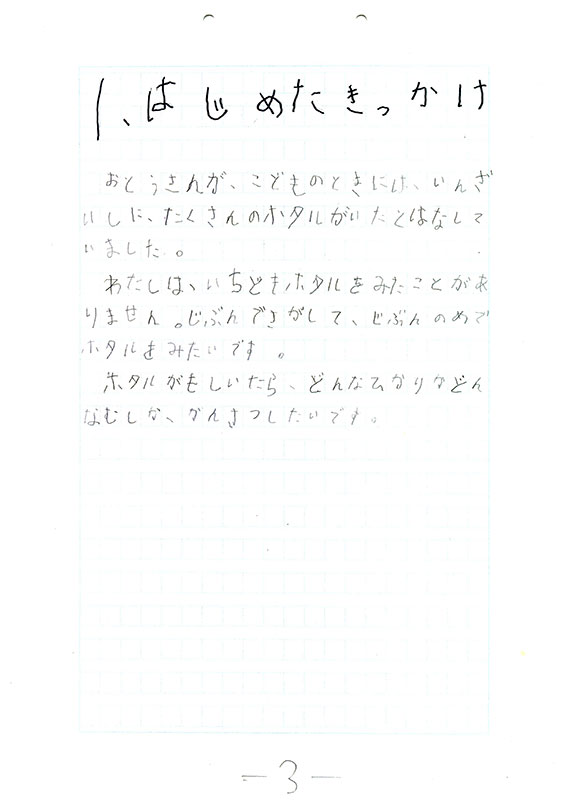 1、はじめたきっかけ
おとうさんが、こどものときには、いんざ
いしに、たくさんのホタルがいたとはなして
いました。
わたしは、いちどもホタルをみたことがあ
りません。じぶんでさがして、じぶんのめで
ホタルをみたいです。
ホタルがもしいたら、どんなひかりかどん
なむしか、かんさつしたいです。
－3－